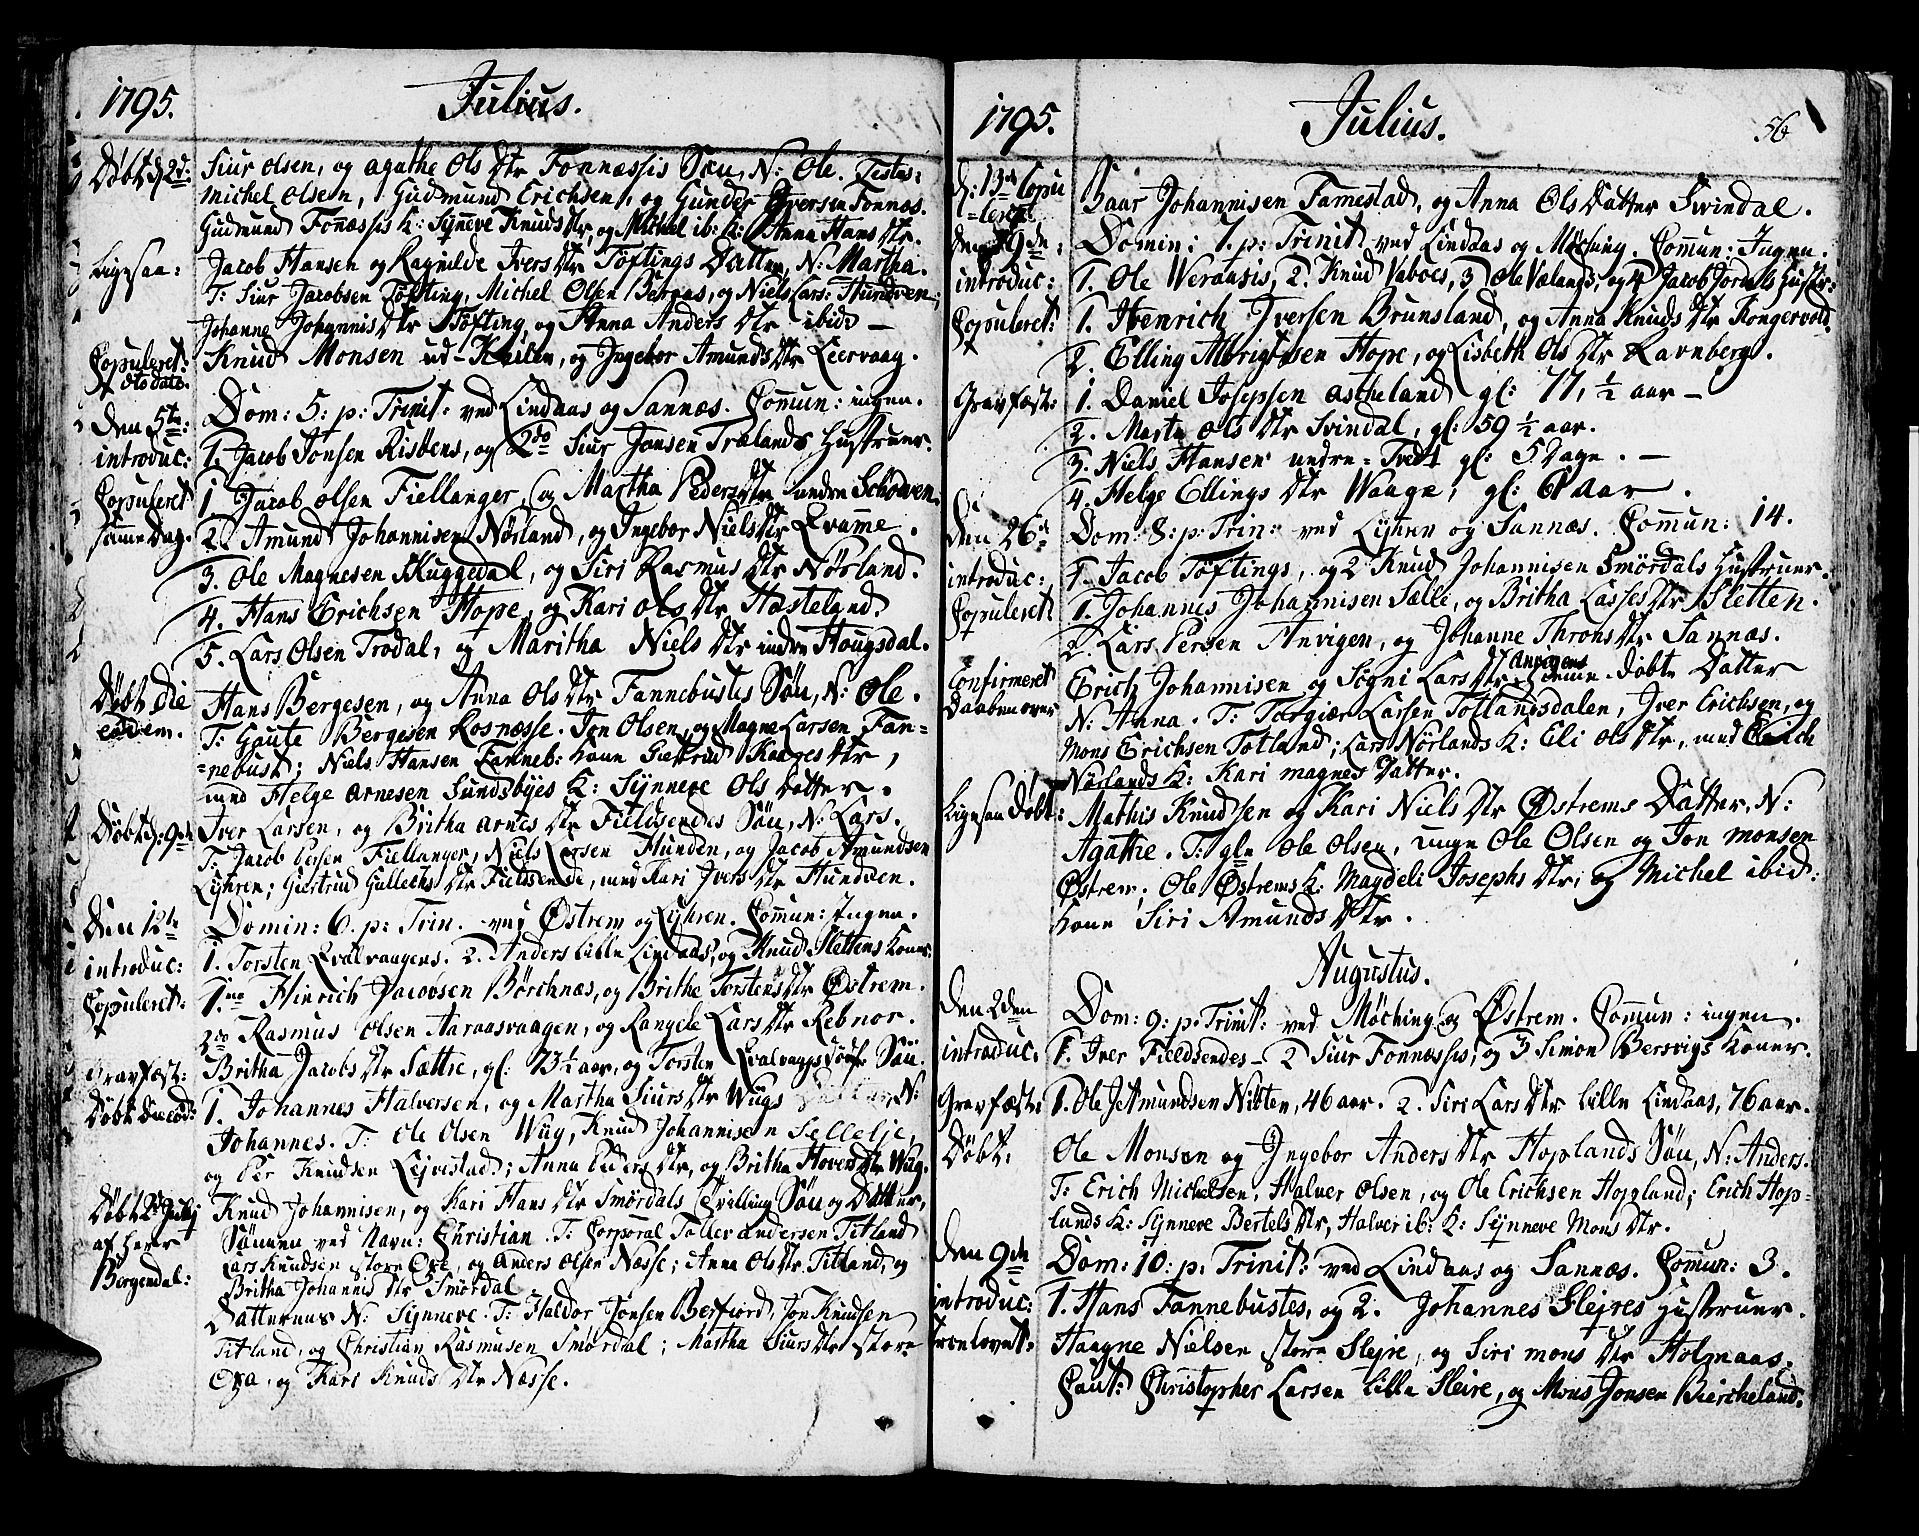 1795. Julius.
Döbt d: 2d: Siur Olsen, og Agathe Ols Dtr Fonnæssis Søn, N: Ole. Testes:
Michel Olsen, Gudmund Erichsen, og Gunder Iversen Fonnæs.
Gudmund Fonnæssis K: Synneve Knuds Dtr, og Michel ib: K: Anna Hans Dtr.
Ligesaa: Jacob Hansen og Ragnilde Ivers Dtr Töftings Datter, N: Martha.
T: Siur Jacobsen Töfting, Michel Olsen Bernas, og Niels Lars: Hundven;
Johanne Johannis Dtr Töfting, og Anna Anders Dtr ibid: —
Copuleret: dto dato. Knud Monsen ud-Keilen, og Ingebor Amunds Dtr Leervaag.
Den 5te: Dom: 5: p: Trinit: ved Lindaas og Sannæs. Comun: ingen.
introduc: 1. Jacob Jonsen Risöens, og 2do Siur Jansen Trælands Hustruer.
Copuleret 1 Jacob Olsen Fiellanger, og Martha Peders Dtr nedre Schodven.
samme Dag. 2. Amund Johannisen Nørland, og Ingebor Niels Dtr Qvamme.
3. Ole Magnesen Skuggedal, og Siri Rasmus Dtr Nörland.
4. Hans Erichsen Hope, og Kari Ols Dtr Hasteland.
5. Lars Olsen Trodal, og Maritha Niels Dtr indre Hougsdal.
Döbt die Hans Bergesen, og Anna Ols Dtr Fannebustes Söu, N: Ole.
eodem. T: Gaute Bergesen Rosnæsse. Jon Olsen, og Magne Larsen Fan=
=nebust; Niels Hansen Fanneb: Kone Giertrud Raages Dtr,
med Helge Arnesen Sundsbyes K: Synneve Ols Datter.
Döbt d: 9de Iver Larsen, og Britha Arnes Dtr Fieldsendes Söu, N: Lars.
T: Jacob Persen Fiellanger, Niels Larsen Hunden, og Jacob Amundsen
Lyhren; Giertrud Gullechs Dtr Fieldsende, med Kari Ivers Dtr Hundven.
Den 12te Domin: 6. p: Trin. ved Østrem og Lyhren. Comun: Ingen.
introduc: 1. Torsten Qvalvaagens. 2. Anders lille Lindaas, og Knud Slettens Koner.
Copuleret: 1mo Hinrich Jacobsen Börchnæs, og Brithe Torstens Dtr Østrem.
2do Rasmus Olsen Aaraasvaagen, og Rangele Lars Dtr Rebnor.
Gravfæst: Britha Jacobs Dtr Sættre, gl: 73½ aar, og Torsten Qvalvaags döde Söu.
Döbt die eod: 1. Johannes Halversen, og Martha Siurs Dtr Wügs N:
Johannes. T: Ole Olsen Wüg, Knud Johannisen Sellelie,
og Per Knudsen Leivestad; Anna Peders Dtr, og Britha Hovers Dtr Wüg.
Döbt 2 July Knud Johannisen, og Kari Hans Dtr Smördals Tvilling Söu og Datter,
af Herr Sönnen ved Navn: Christian. T: Corporal Toller Andersen Titland
Bergendal: Lars Knudsen store Oxe, og Anders Olsen Næsse; Anna Ols Dtr Titland, og
Britha Johannis Dtr Smördal
Datterens N: Synneve. T: Haldor Jonsen Berfiord, Jon Knudsen
Titland, og Christian Rasmusen Smördal; Martha Siurs Dtr store
Oxa, og Kari Knuds Dtr Næsse.
1795. Julius. 56
d: 13de Copu Baar Johannisen Famestad, og Anna Ols Datter Svindal.
=leret
Den 19de: Domin: 7. p: Trinit ved Lindaas og Möching. Comun: Ingen.
introduc: 1. Ole Weraasis, 2. Knud Vaboes, 3 Ole Valands, og 4 Jacob Jordals Hustr:
Copuleret: 1. Henrich Iversen Brunsland, og Anna Knuds Dtr Kongervold.
2. Elling Albrigtsen Hope, og Lisbeth Ols Dtr Ravnberg.
Gravfæst: 1. Daniel Josepsen Astheland gl: 77, ½ aar —
2. Marta Ols Dtr Svindal, gl: 59 ½ aar.
3. Niels Hansen nedre=Tvedt gl: 5 Dage. —
4. Helge Ellings Dtr Waage, gl: 6 aar.
Den 26de Dom: 8: p: Trin: ved Lyhren og Sannæs. Comun: 14.
introduc: 1. Jacob Töftings, og 2 Knud Johannisen Smördals Hustruer.
Copuleret 1. Johannes Johannisen Sælle, og Britha Lasses Dtr Sletten.
2. Lars Persen Anvigen, og Johanne Throns Dtr Sannæs.
Confirmeret Erich Johannisen og Sogni Lars Dtr Anvigens hiemme-döbte Datter
Daaben over N: Anna. T: Torgiær Larsen Totlandsdalen, Iver Erichsen, og
Mons Erichsen Totland; Lars Nörlands K: Eli Ols Dtr, med Erich
Nörlands K: Kari Magnes Datter.
Ligesaa Döbt: Mathis Knudsen og Kari Niels Dtr Østrems Datter, N:
Agathe. T: gle Ole Olsen, unge Ole Olsen og Jon Monsen
Østrem; Ole Østrems K: Magdeli Josephs Dtr; og Michel ibid:
Kone Siri Amunds Dtr.
Augustus.
Den 2den Dom: 9: p: Trinit: ved Möching og Østrem. Comun: ingen.
introduc. 1. Iver Fieldsendes — 2 Siur Fonnæssis, og 3 Simon Bersvigs Koner.
Gravfæst: 1. Ole Amundsen Nibten, 46 aar. 2. Siri Lars Dtr lille Lindaas, 76 aar.
Döbt: Ole Monsen og Ingebor Anders Dtr Hoplands Söu, N: Anders.
T: Erich Michelsen, Halver Olsen, og Ole Erichsen Hopland; Erich Hop=
lands K: Synneve Bertels Dtr, Halver ib: K: Synneve Mons Dtr.
Den 9de Dom: 10: p: Trinit: ved Lindaas og Sannæs. Comun: 3.
introduc: 1. Hans Fannebustes, og 2. Johannes Slejres Hustruer.
Trolovet: Haagne Nielsen store Slejre, og Siri Mons Dtr Holmaas.
Caut: Christopher Larsen lille Sleire, og Mons Jonsen Biercheland.